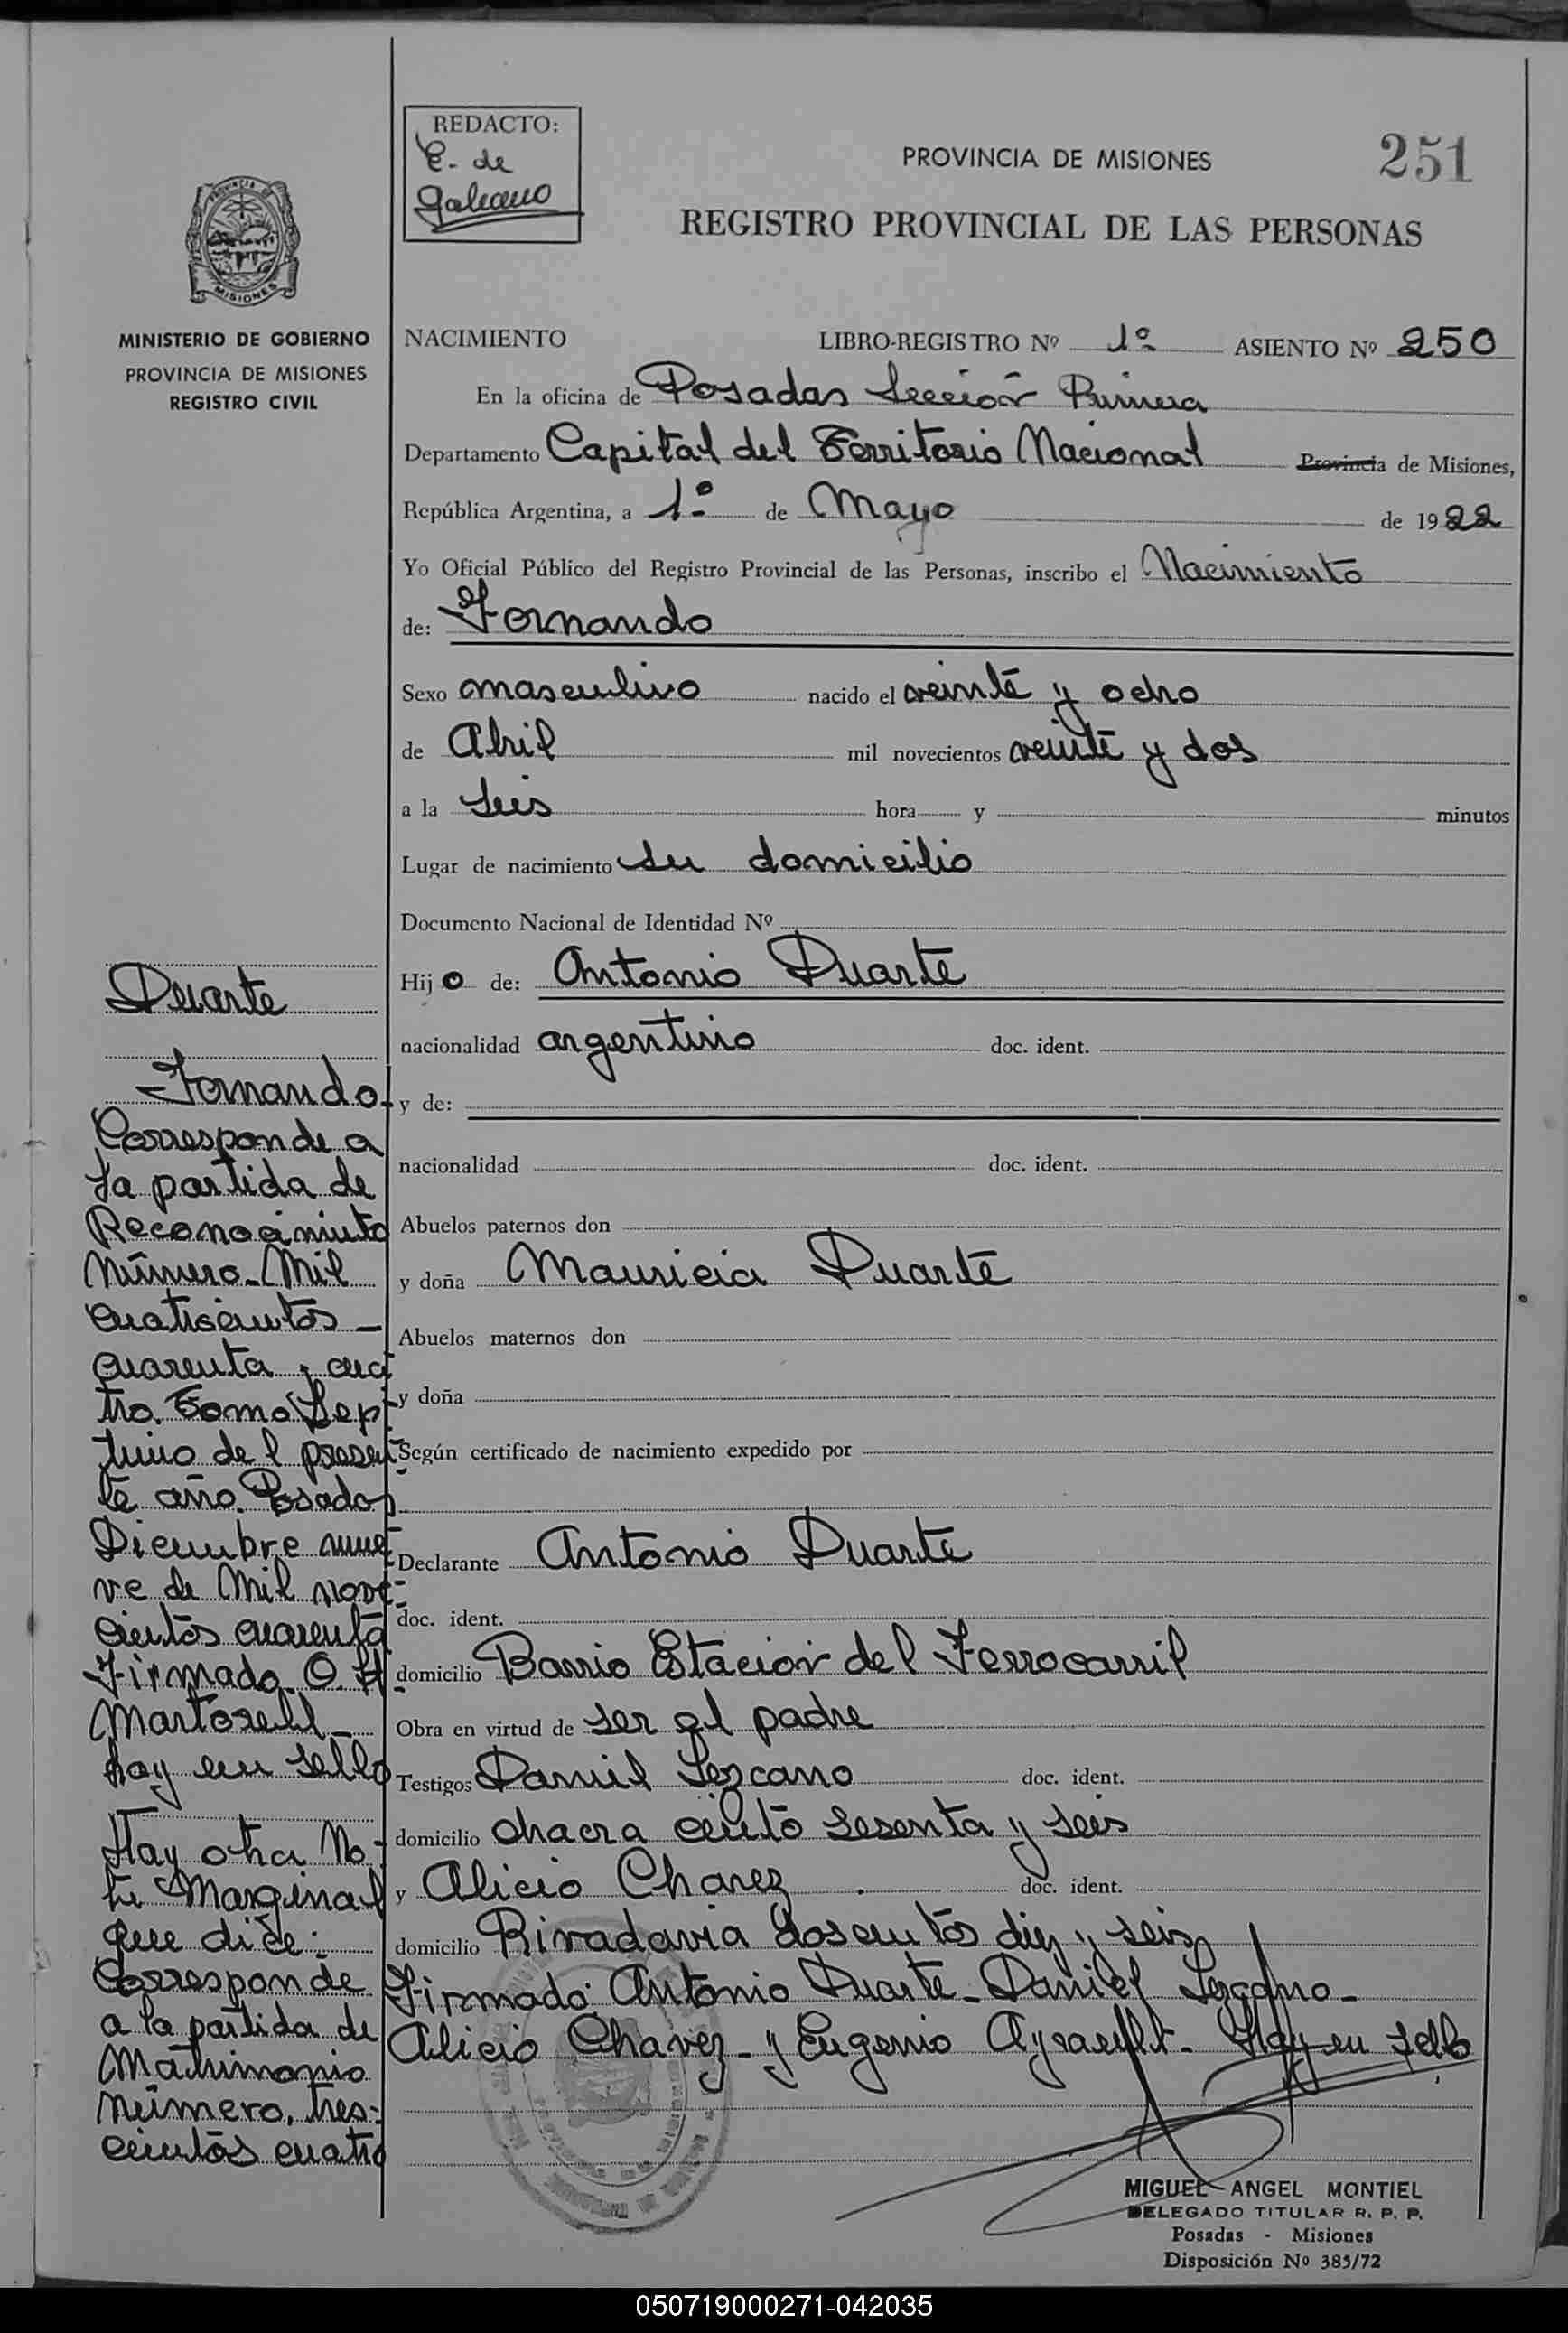 REDACTO:
E. de
Galeano
PROVINCIA DE MISIONES
251
REGISTRO PROVINCIAL DE LAS PERSONAS
PROVINCIA DE
MISIONES
MINISTERIO DE GOBIERNO
PROVINCIA DE MISIONES
REGISTRO CIVIL
NACIMIENTO LIBRO-REGISTRO Nº 1º ASIENTO Nº 250
En la oficina de Posadas Sección Primera
Departamento Capital del Territorio Nacional Provincia de Misiones,
República Argentina, a 1º de Mayo de 1922
Yo Oficial Público del Registro Provincial de las Personas, inscribo el Nacimiento
de: Fernando
Sexo masculino nacido el veinte y ocho
de Abril mil novecientos veinte y dos
a la Seis hora y minutos
Lugar de nacimiento su domicilio
Documento Nacional de Identidad Nº
Hijo de: Antonio Duarte
nacionalidad argentino doc. ident.
y de:
nacionalidad doc. ident.
Abuelos paternos don
y doña Mauricia Duarte
Abuelos maternos don
y doña
Según certificado de nacimiento expedido por
Declarante Antonio Duarte
doc. ident.
domicilio Barrio Estación del Ferrocarril
Obra en virtud de ser el padre
Testigos Daniel Lezcano doc. ident.
domicilio chacra ciento sesenta y seis
y Alicio Chavez doc. ident.
domicilio Rivadavia doscientos diez y seis
Firmado: Antonio Duarte - Daniel Lezcano -
Alicio Chavez - y Eugenio Ayrault - Hay un sello
Duarte
Fernando
Corresponde a
la partida de
Reconocimiento
número Mil
cuatrocientos
cuarenta y cua
tro. Tomo Sep
timo del presen
te año. Posadas
Diciembre nue
ve de Mil nove-
cientos cuarenta
Firmado. O. H.
Martorell -
Hay un sello
Hay otra No-
ta Marginal
que dice:
Corresponde
a la partida de
Matrimonio
número, tres-
cientos cuatro
MIGUEL ANGEL MONTIEL
DELEGADO TITULAR R. P. P.
Posadas - Misiones
Disposición Nº 385/72
050719000271-042035